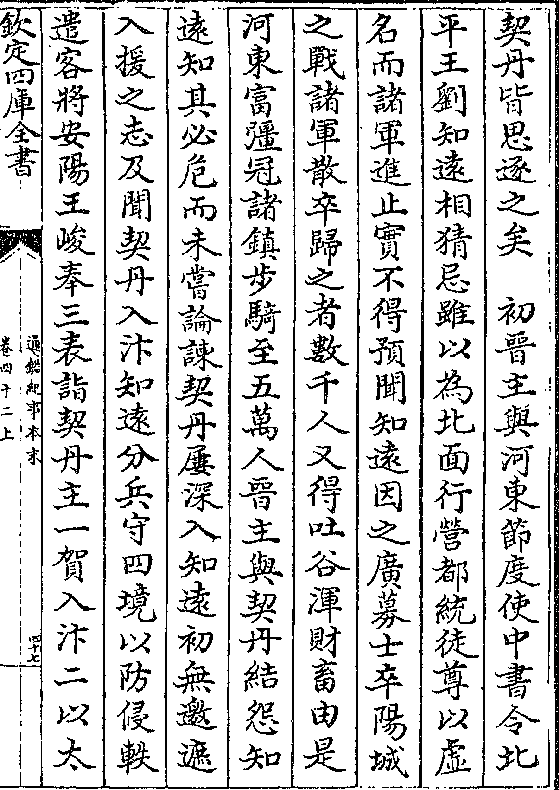 契丹皆思逐之矣　初晉主與河東節度使中書令北
平王劉知遠相猜忌雖以為北面行營都統徒尊以虛
名而諸軍進止實不得預聞知遠因之廣募士卒陽城
之戰諸軍散卒歸之者數千人又得吐谷渾財畜由是
河東富彊冠諸鎮步騎至五萬人晉主與契丹結怨知
遠知其必危而未嘗論諫契丹屢深入知遠初無邀遮
入援之志及聞契丹入汴知遠分兵守四境以防侵軼
遣客將安陽王峻奉三表詣契丹主一賀入汴二以太
欽定四庫全書
通鑑紀事本末
卷四十二上
四十七